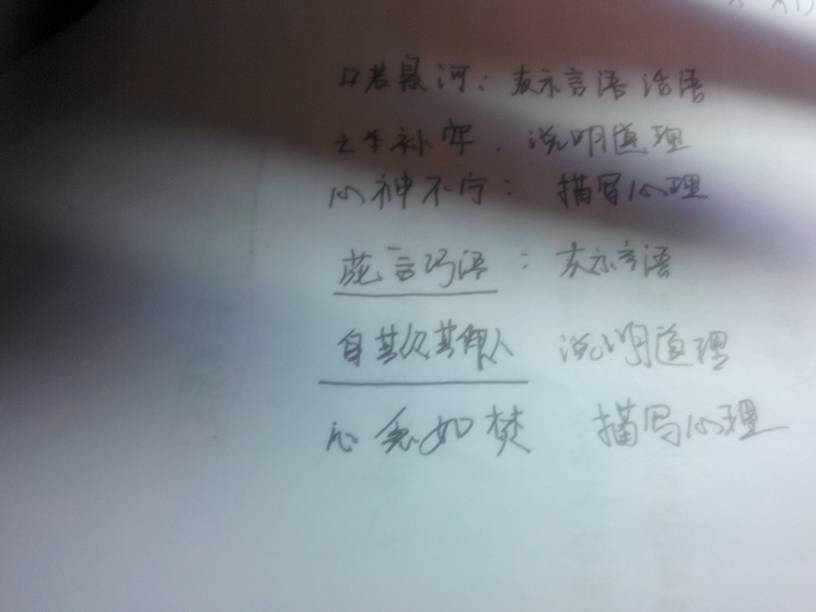 口若悬河：表示言语 话语
亡羊补牢． 说明道理
心神不宁： 描写心理
花言巧语： 表示言语
自欺欺人 说明道理
心急如焚 描写心理